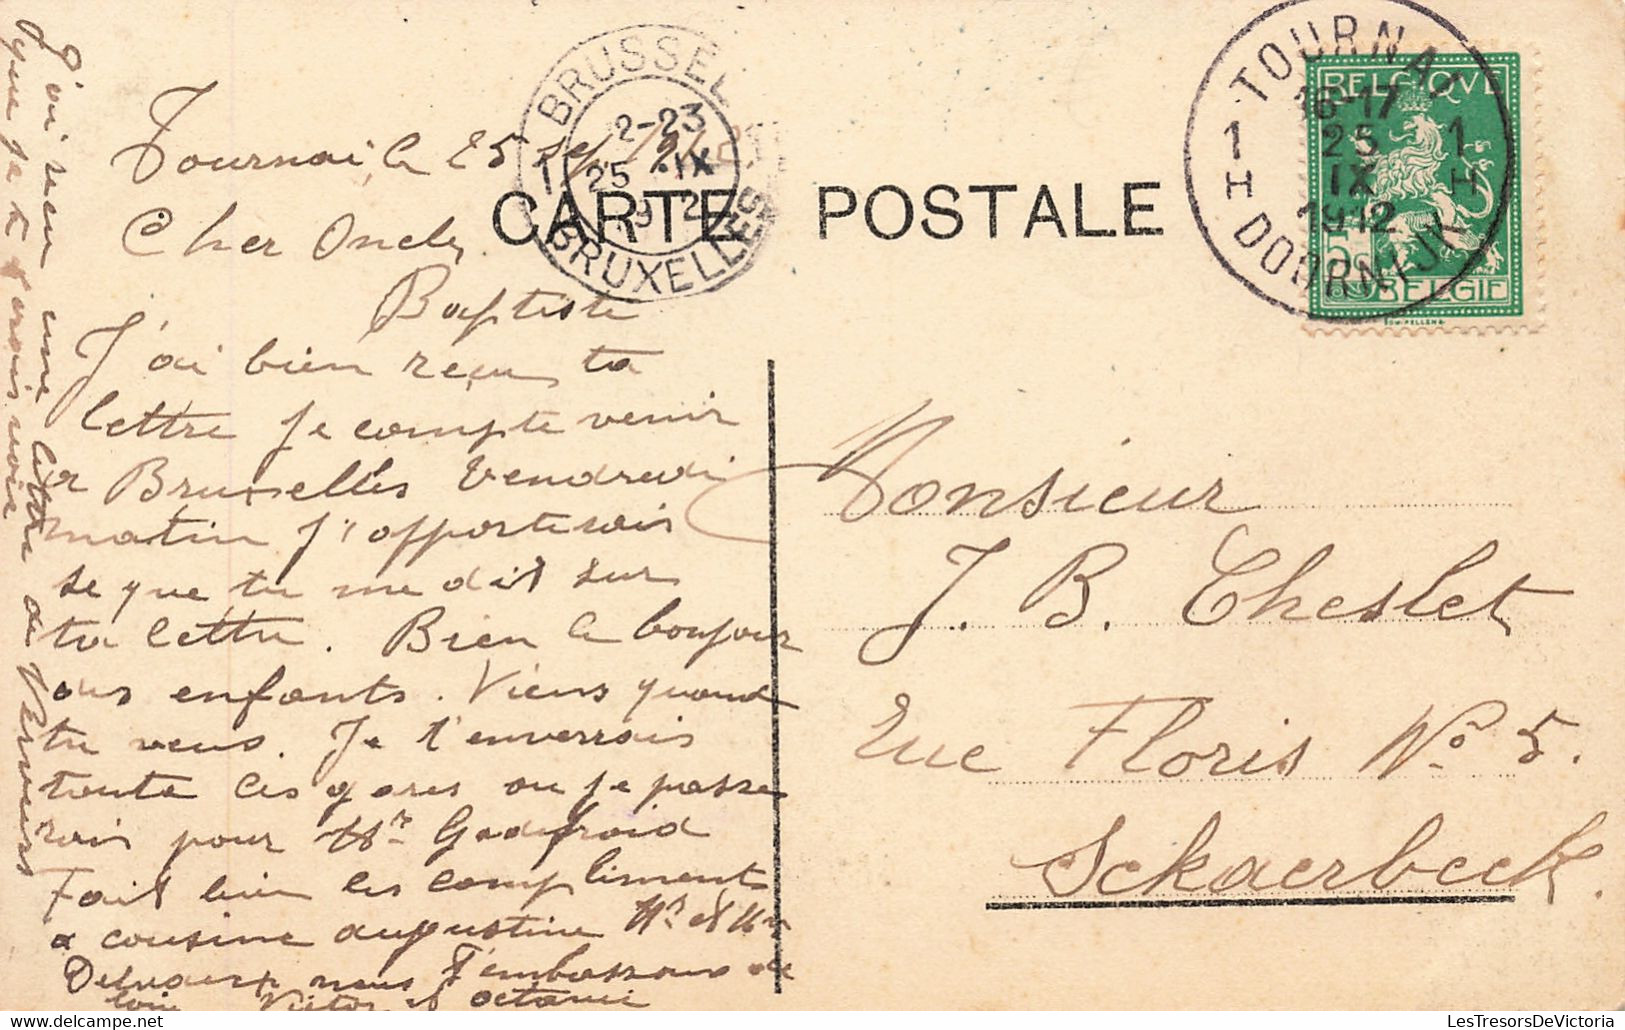 BRUSSEL
1
2-23
25 IX
BRUXELLES
TOURNAI
16-17
1 25 1
H IX H
1912
DOORNIJK
BELGIQUE
5
BELGIË
CARTE POSTALE
Tournai, le 25 Sep. 1912
Cher Oncle
Baptiste
J'ai bien reçus ta
lettre je compte venir
a Bruxelles Vendredi
matin j'apporterais
se que tu me dit sur
ta lettre. Bien le bonjour
aux enfants. Viens quand
tu veus. Je t'enverrais
toute les gares ou je passe
rais pour Mr Godefroid
Fait bien les compliments
a cousine augustine Mr et Mm
nous t'embrassons de
loin Victor et octavie
J'ai reçu une lettre de Verviers
que je te ferais voir
Monsieur
J. B. Cheslet
Rue Floris No 5.
Sckaerbeek.
LesTresorsDeVictoria